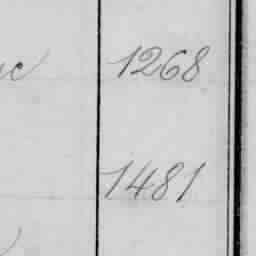 1268
1481